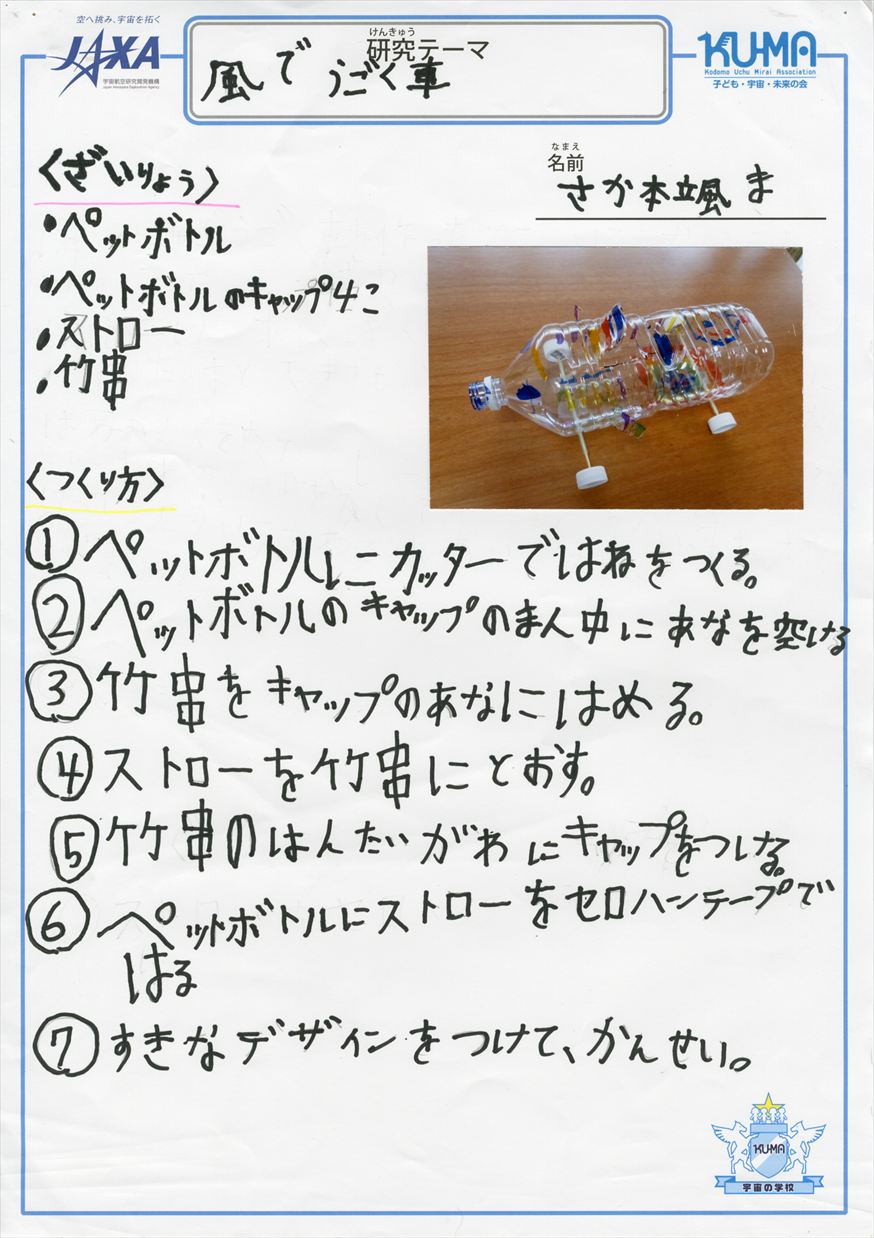 空へ挑み、宇宙を拓く
JAXA
宇宙航空研究開発機構
Japan Aerospace Exploration Agency
けんきゅう
研究テーマ
風でうごく車
KU-MA
Kodomo Uchu Mirai Association
子ども・宇宙・未来の会
なまえ
名前
さか本立風ま
〈ざいりょう〉
•ペットボトル
•ペットボトルのキャップ4こ
•ストロー
•竹串
〈つくり方〉
①ペットボトルにカッターではねをつくる。
②ペットボトルのキャップのまん中にあなを空ける
③竹串をキャップのあなにはめる。
④ストローを竹串にとおす。
⑤竹串のはんたいがわにキャップをつける。
⑥ペットボトルにストローをセロハンテープで
はる
⑦すきなデザインをつけて、かんせい。
KU-MA
宇宙の学校